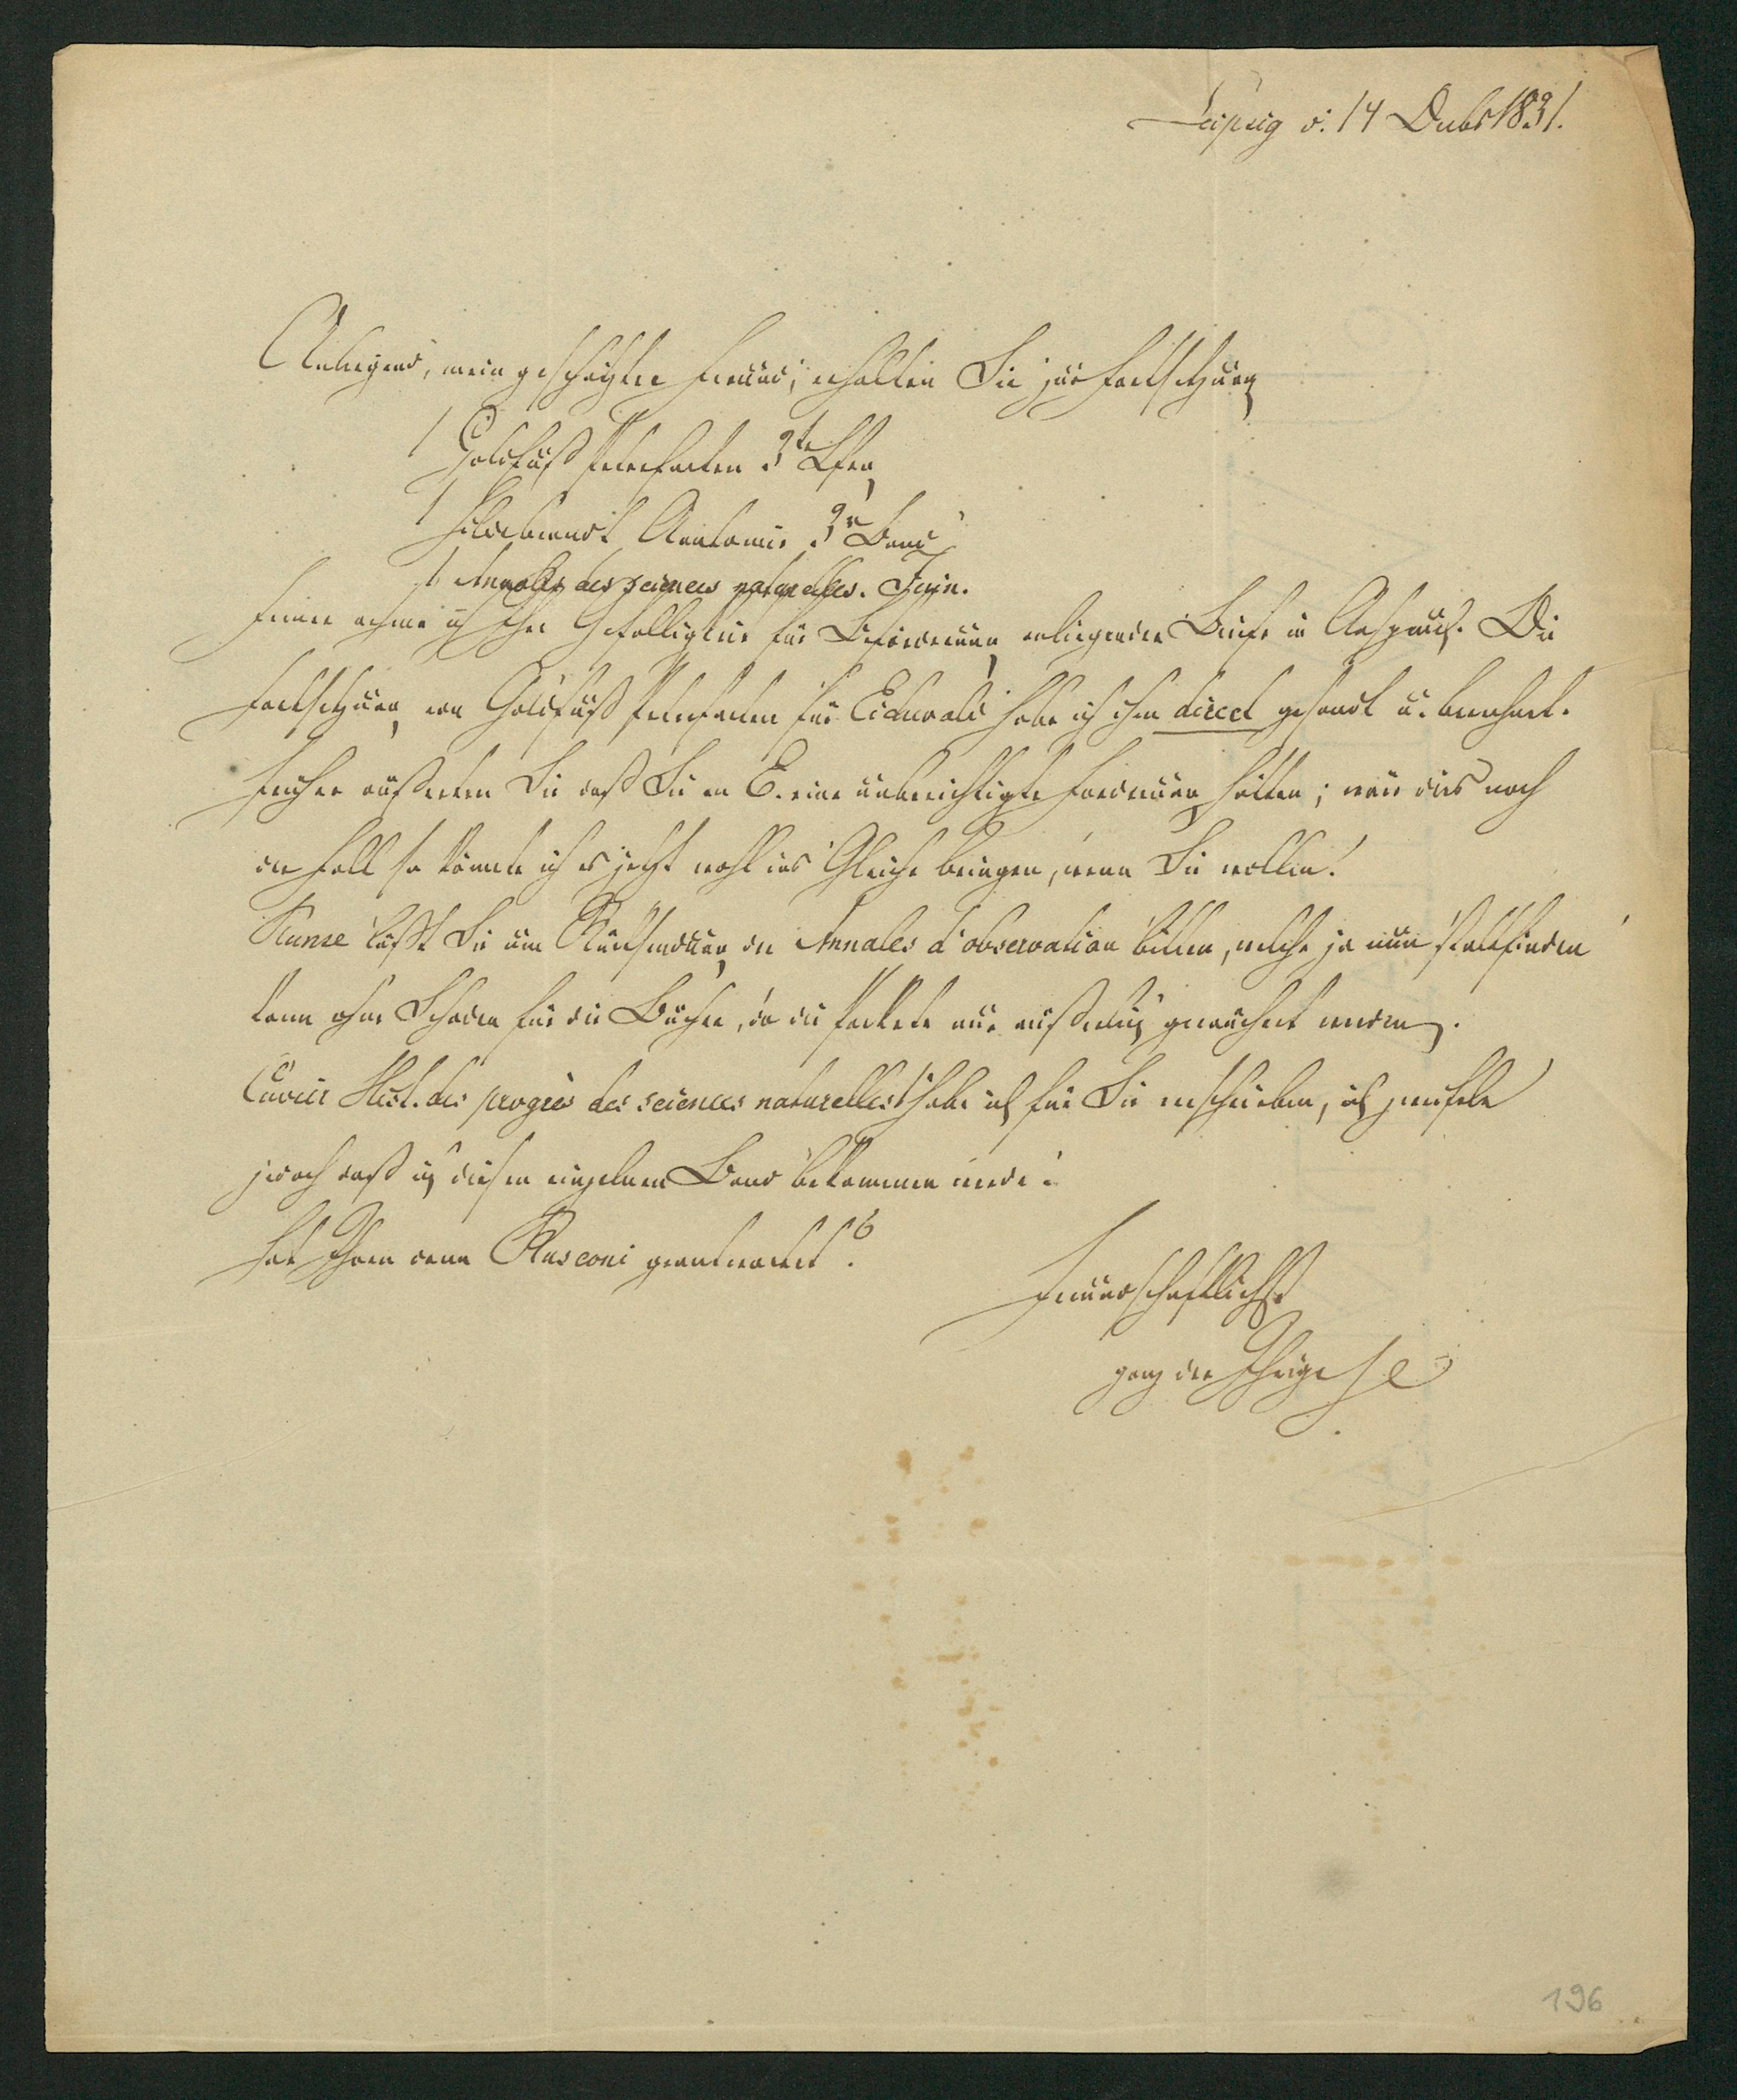 Leipzig d. 14 Decbr 1831.
Anliegend, mein geschätzter Freund, erhalten Sie zur Fortsetzung
1 Goldfuß Petrefacten 3te Lfrg
1 Hildebrandt Anatomie 3r Band
1 Annales des sciences naturelles. Juin.
Ferner nehme ich Ihre Gefälligkeit für Beförderung anliegender Briefe in Anspruch. Die
Fortsetzung von Goldfuß Petrefacten für Eichwald habe ich ihm direct gesandt u. berechnet.
Früher äußerten Sie daß Sie an E. eine unberichtigte Forderung hätten; wäre dies noch
der Fall so könnte ich es jetzt wohl ins Gleiche bringen, wenn Sie wollen.
Kunze läßt Sie um Rücksendung der Annales d'observation bitten, welche ja nun stattfinden
kann ohne Schaden für die Bücher, da die Packete nur äußerlich geräuchert werden.
Cuvier Hist. des progrès des sciences naturelles habe ich für Sie verschrieben, ich zweifele
jedoch daß ich diesen einzelnen Band bekommen werde.
Hat Ihnen denn Rusconi geantwortet?
Freundschaftlichst
ganz der Ihrige
196